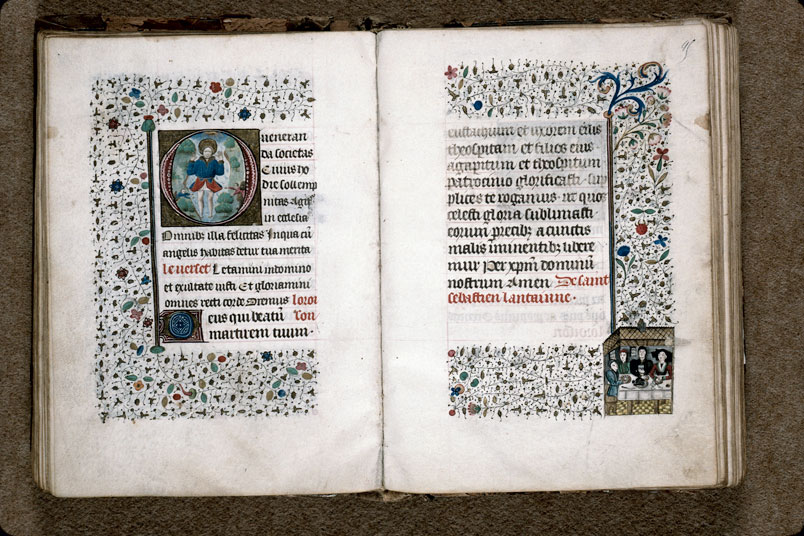 O veneran
da societas
Cuius ho
die sollemp
nitas agit̄
in ecclesia
Omnibꝫ illa felicitas Inqua cū
angelis habitas detur tua merita
le verset Letamini indomino
et exultate iusti Et gloriamini
omnes recti corde Oremus loroi
Deus qui beatū son
martirem tuum
eustaquium et uxorem eius
theospitam et filios eius
agapitum et theospitum
patrocinio glorificasti sup
plices te rogamus ut quos
celesti gloria sublimasti
eorum precibꝫ a cunctis
malis iminentibꝫ libere
mur Per xp̄m dominū
nostrum Amen De saint
sebastien lantainne